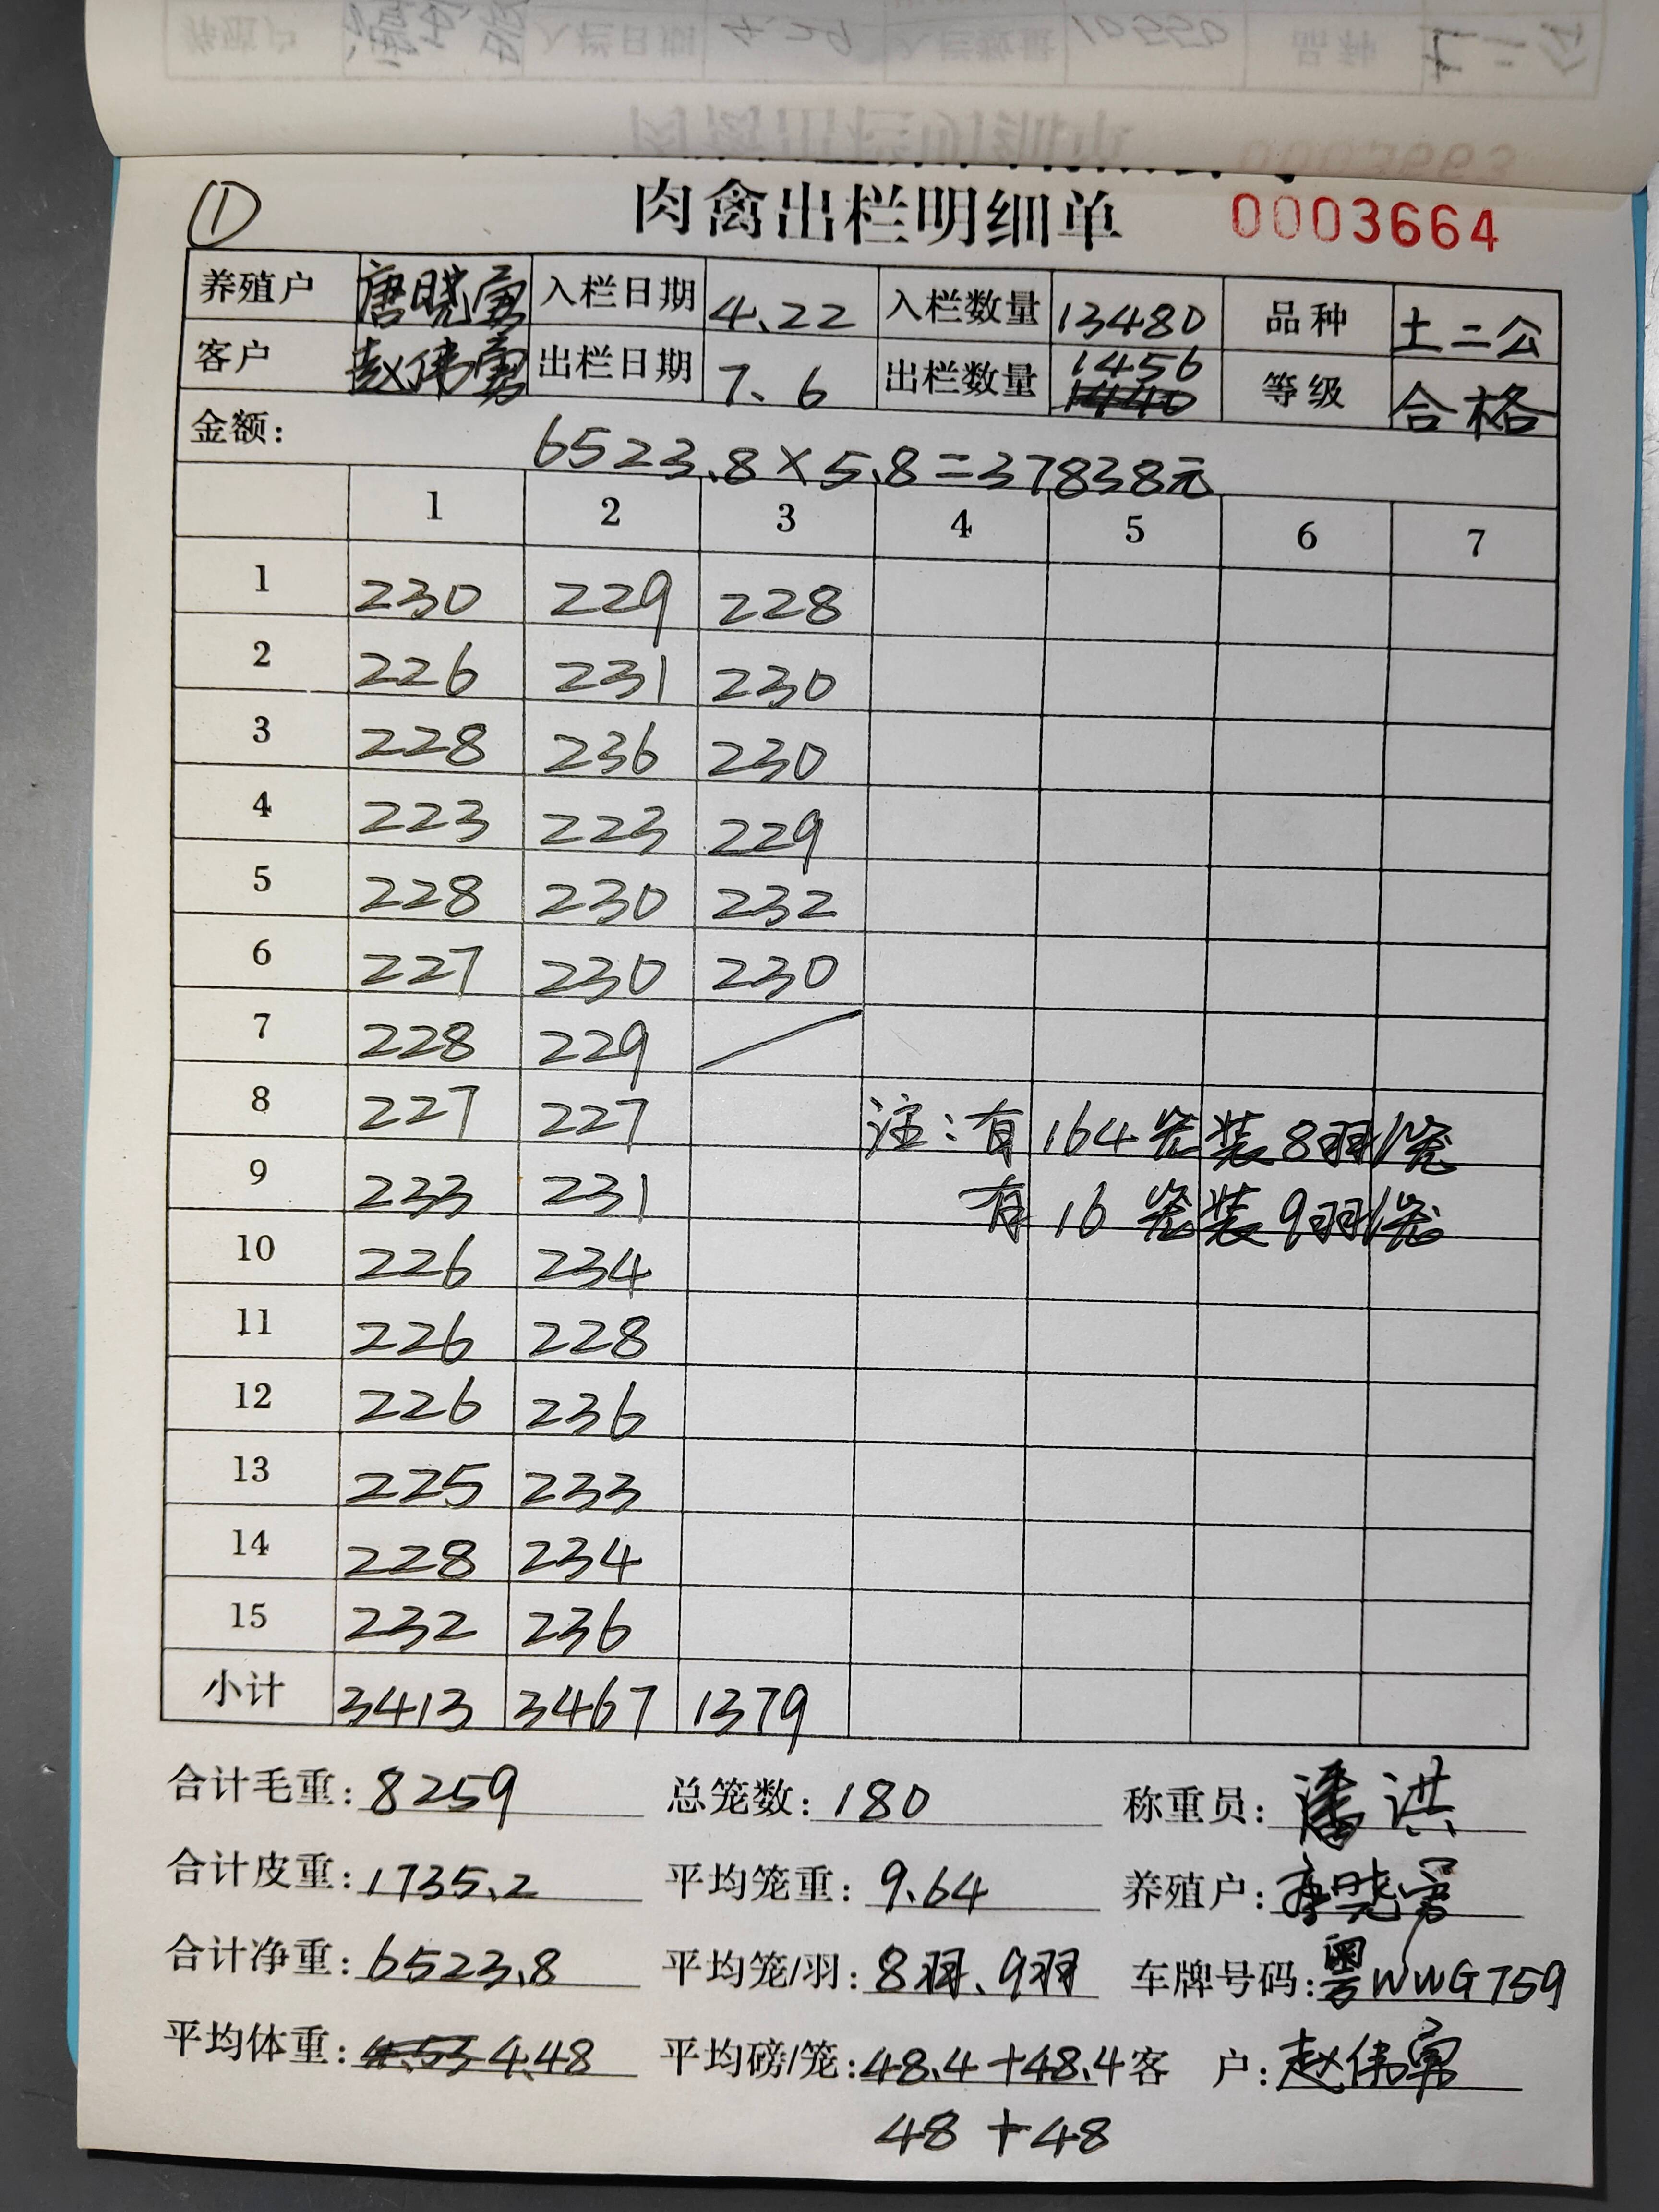 ①
肉禽出栏明细单 0003664
养殖户 唐晓勇 入栏日期 4.22 入栏数量 13480 品种 土二公
客户 赵伟勇 出栏日期 7.6 出栏数量 1456 1440 等级 合格
金额: 6523.8×5.8=37838元
1 2 3 4 5 6 7
1 230 229 228
2 226 231 230
3 228 236 230
4 223 223 229
5 228 230 232
6 227 230 230
7 228 229
8 227 227 注:有164笼装8羽/笼
9 233 231 有16笼装9羽/笼
10 226 234
11 226 228
12 226 236
13 225 233
14 228 234
15 232 236
小计 3413 3467 1379
合计毛重: 8259 总笼数: 180 称重员: 潘洪
合计皮重: 1735.2 平均笼重: 9.64 养殖户: 唐晓勇
合计净重: 6523.8 平均笼/羽: 8羽、9羽 车牌号码: 粤WWG759
平均体重: 4.53 4.48 平均磅/笼: 48.4+48.4 客 户: 赵伟勇
48+48